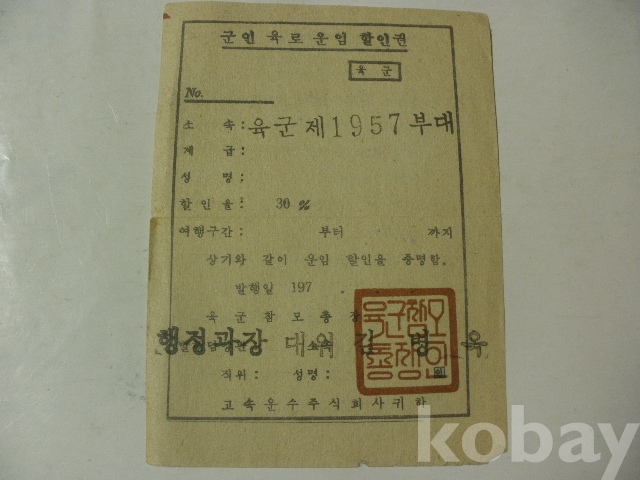 군인 육로운임 할인권
육 군
No.
소 속: 육군 제1957부대
계 급:
성 명:
할인율: 30 %
여행구간: 부터 까지
상기와 같이 운임 할인을 증명함.
발행일 197 .
육 군 참 모 총 장
행정과장 대위 김 병 옥
소속
직위: 성명:
고속운수주식회사귀하
kobay